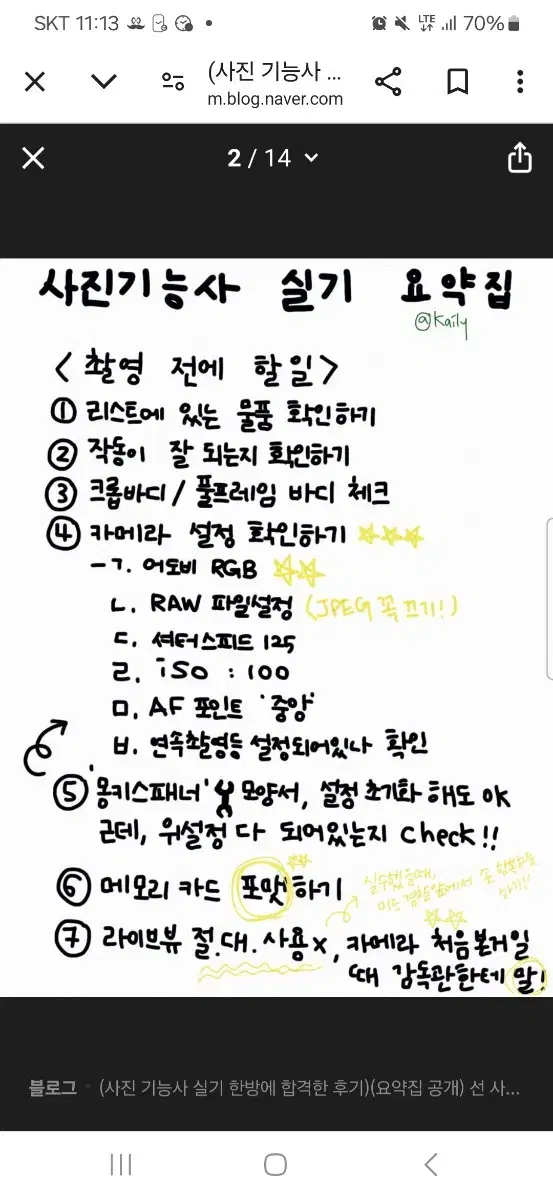 SKT 11:13
LTE 70%
(사진 기능사 ...
m.blog.naver.com
2 / 14
사진기능사 실기 요약집
@Kaily
<촬영 전에 할일>
① 리스트에 있는 물품 확인하기
② 작동이 잘 되는지 확인하기
③ 크롭바디 / 풀프레임 바디 체크
④ 카메라 설정 확인하기
-ㄱ. 어도비 RGB
ㄴ. RAW 파일설정 (JPEG 꼭 끄기!)
ㄷ. 셔터스피드 125
ㄹ. iSO : 100
ㅁ. AF 포인트 '중앙'
ㅂ. 연속촬영등 설정되어있나 확인
⑤ '몽키스패너' 모양서, 설정 초기화 해도 OK
근데, 위설정 다 되어있는지 check!!
⑥ 메모리 카드 포맷하기
실수했을때,
⑦ 라이브뷰 절.대.사용x, 카메라 처음본거일
때 감독관한테 말!
블로그 · (사진 기능사 실기 한방에 합격한 후기)(요약집 공개) 선 사...